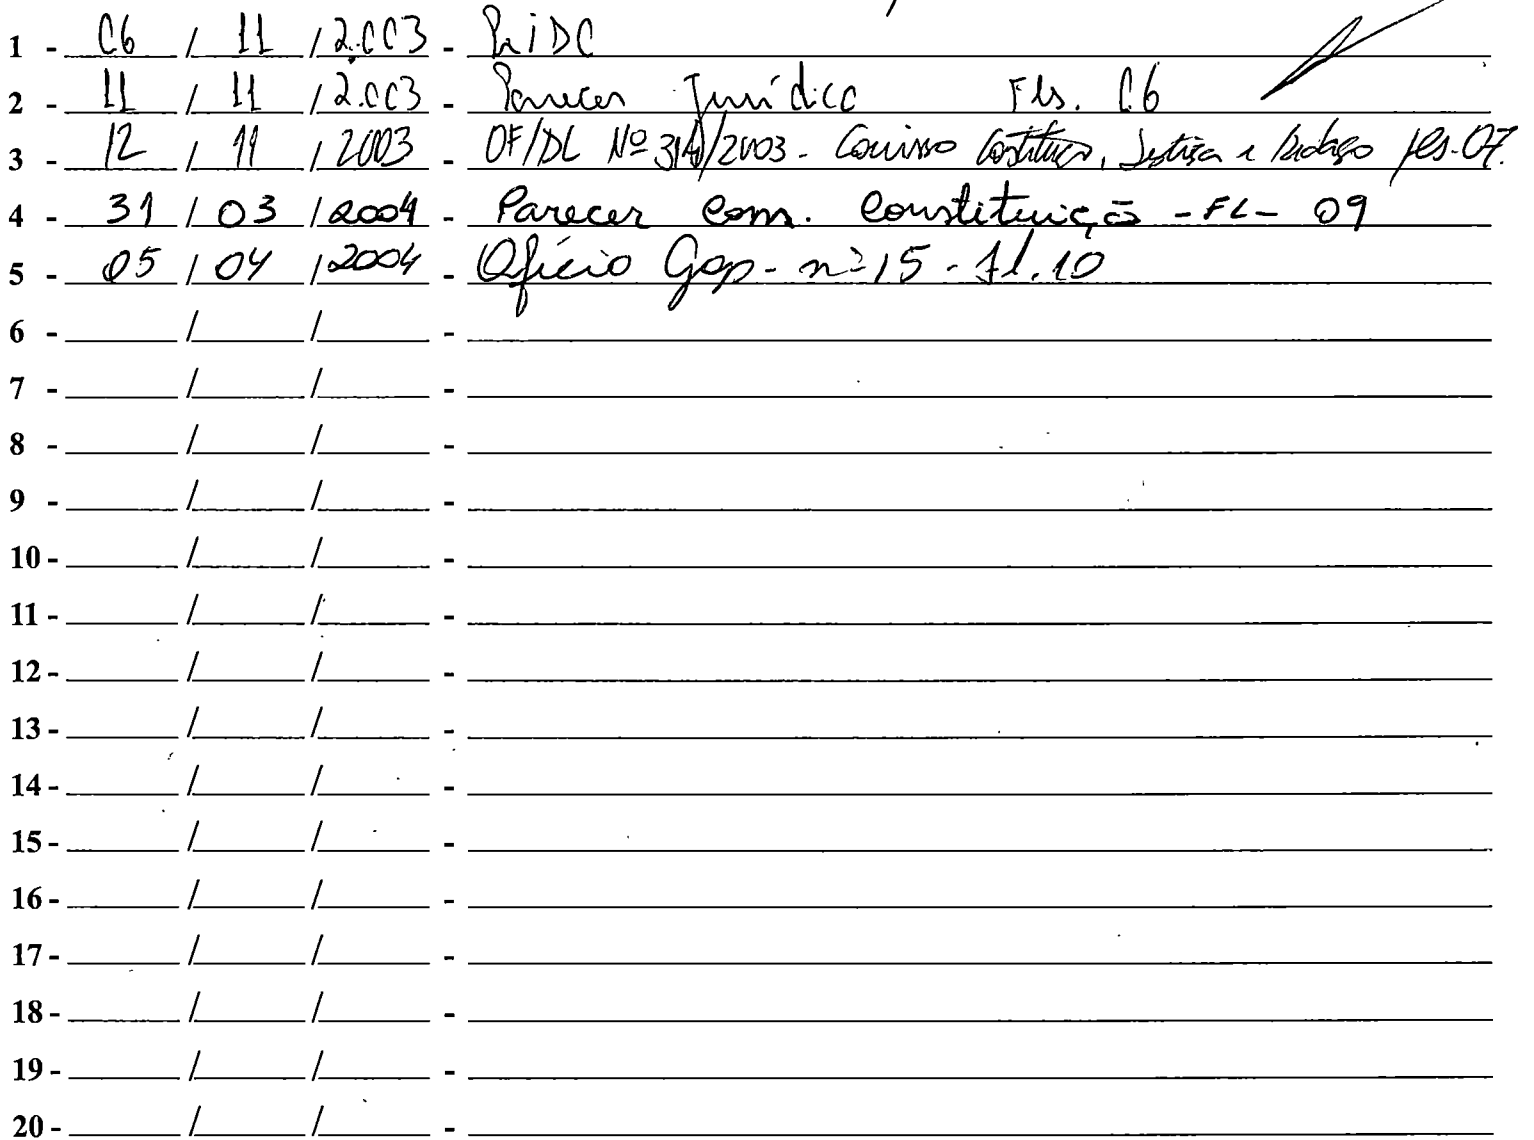 1 - 06 / 11 / 2.003 - LiDO
2 - 11 / 11 / 2.003 - Parecer Jurídico Fls. 06
3 - 12 / 11 / 2003 - OF/DL Nº /2003 - Justiça e fls. 07.
4 - 31 / 03 / 2004 - Parecer Com. Constituiçã - FL - 09
5 - 05 / 04 / 2004 - Ofício nº 15 - fl. 10
6 - / / -
7 - / / -
8 - / / -
9 - / / -
10 - / / -
11 - / / -
12 - / / -
13 - / / -
14 - / / -
15 - / / -
16 - / / -
17 - / / -
18 - / / -
19 - / / -
20 - / / -